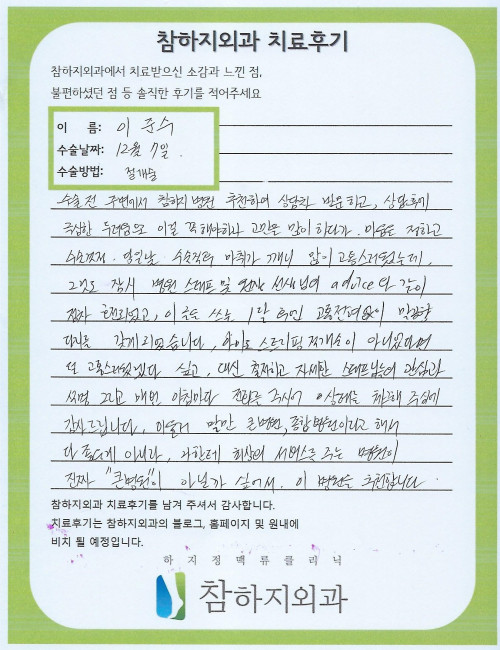 참하지외과 치료후기
참하지외과에서 치료받으신 소감과 느낀 점,
불편하셨던 점 등 솔직한 후기를 적어주세요
이 름: 이준수
수술날짜: 12월 7일.
수술방법: 절개술
수술 전 주변에서 참하지 병원 추천하여 상담차 방문하고, 상담후기
극심한 두려움으로 이걸 꼭 해야하나 고민을 많이 하다가. 마음을 정하고
수술까지. 당일날 수술직후 마취가 깨니 많이 고통스러웠는데,
그것도 잠시 병원 스태프 및 원장 선생님의 advice와 같이
점차 호전되었고, 이 글을 쓰는 1달 후인 고통전혀없이 막바지
다리를 갖게 되었습니다,
또 고통스러웠겠다 싶고, 대신 훌륭하고 자세한 스태프님들의 관심과
설명 그리고 매번 아침마다 전화를 주셔서 이상태를 체크해 주심에
감사드립니다, 아울러 말만 큰병원, 종합병원이라고 해서
다 좋은게 아니라, 나한테 최상의 서비스를 주는 병원이
진짜 "큰병원"이 아닌가 싶어서. 이 병원을 추천합니다.
참하지외과 치료후기를 남겨 주셔서 감사합니다.
치료후기는 참하지외과의 블로그, 홈페이지 및 원내에
비치 될 예정입니다.
하지정맥류클리닉
참하지외과